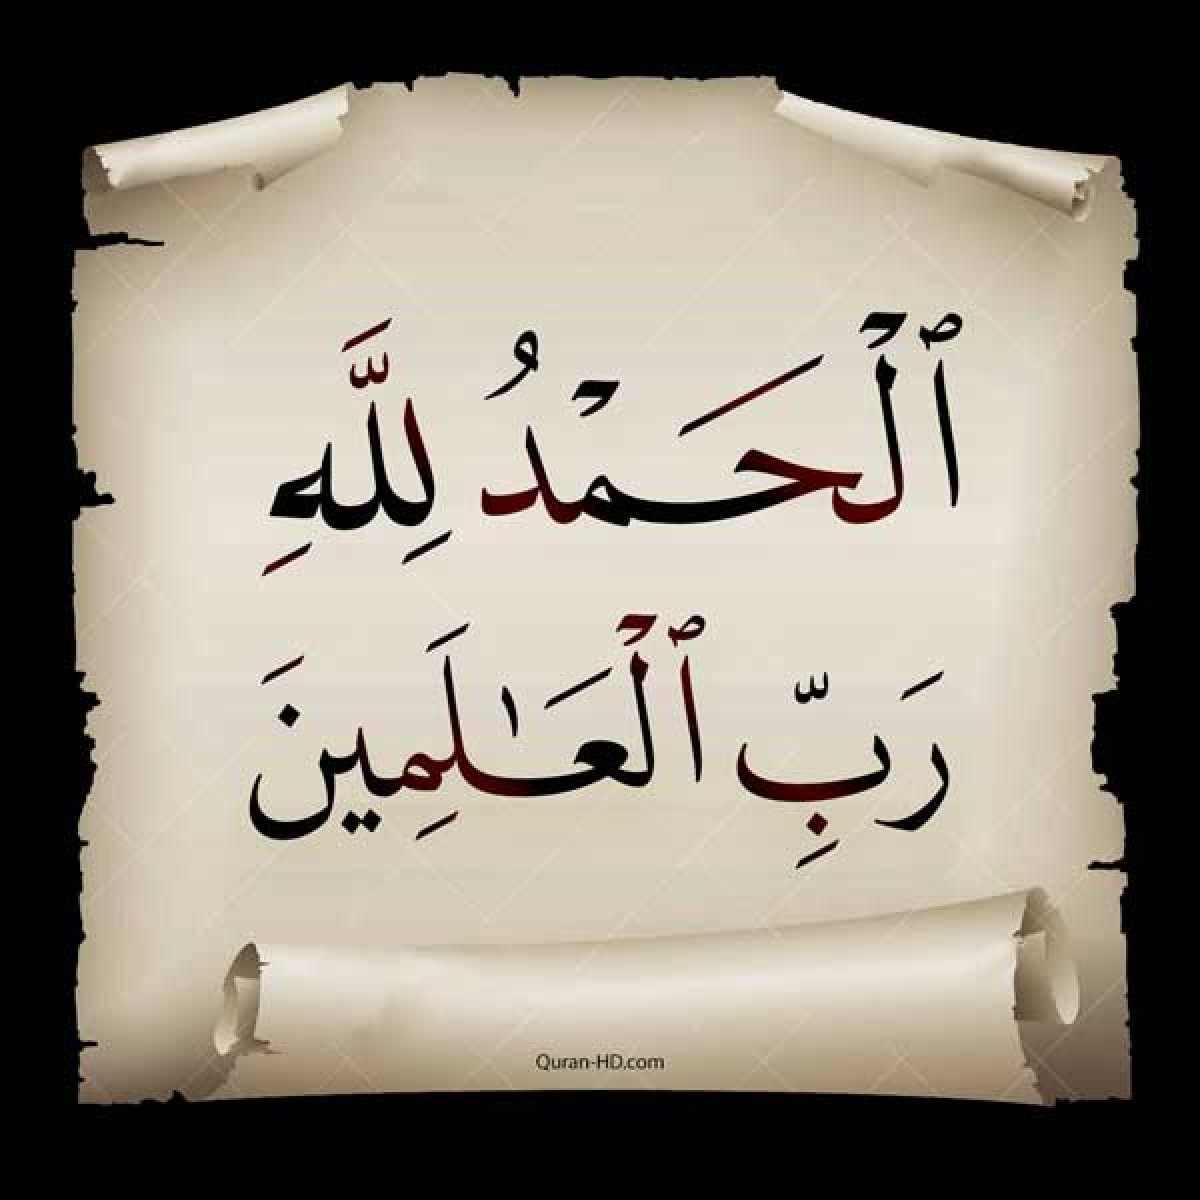 ٱلْحَمْدُ لِلَّهِ
رَبِّ ٱلْعَـٰلَمِينَ
Quran-HD.com